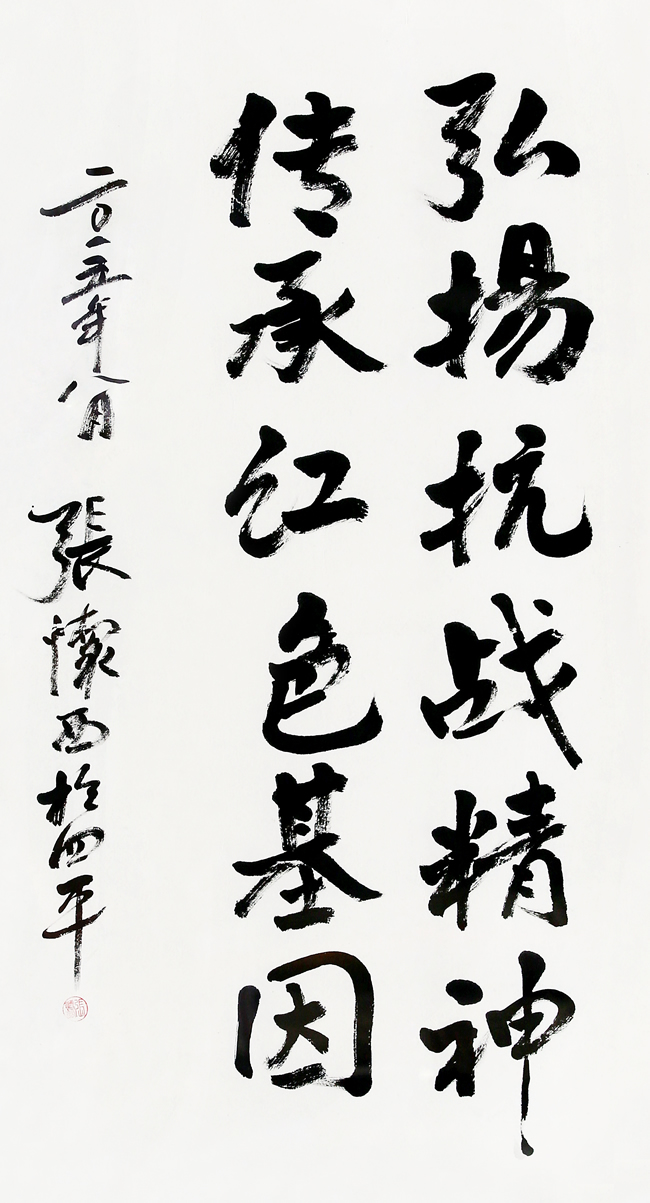 弘揚抗战精神
传承红色基因
二〇一五年八月 張懷西於四平